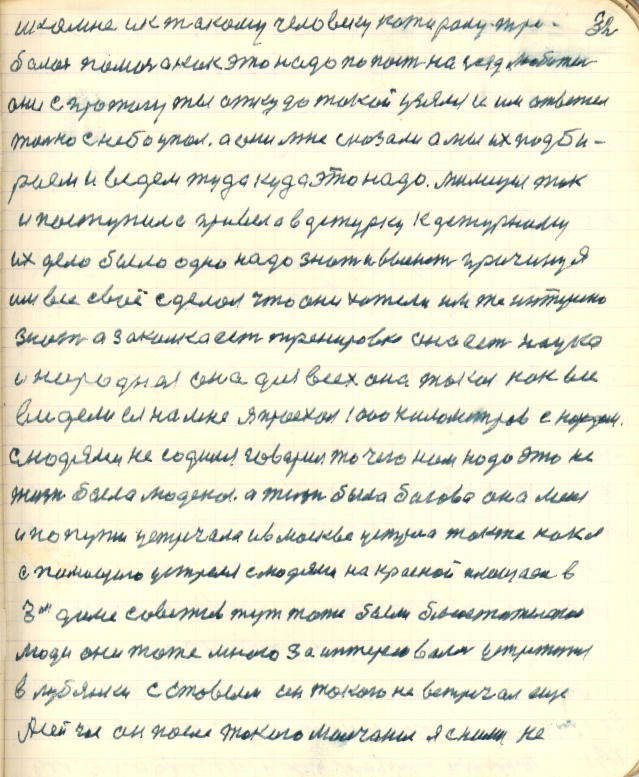 32
шкомне ик такому человеку катораму тре-
балоя помоч акак это надо попост на
они спротогу ты откудо токой узяли и им ответел
точно снебо упол. а они мне сказали а мы их подби-
раем и ведем туда куда это надо. милиция так
и поступила привела в детурку к детурному
их дело было одно надо знот и вынот причину я
им все своё сделол что они хотели им же интересно
знот а заколкаест тренировка она ест наука
и народная она для всех она такая как вы
видели ея на мне я проехол 1000 километров с
слюдями не содился говорил то чего нам надо это не
жизн была людская. а жизн была багова она меня
и попути устречала и в москве устрела также как я
с помощию устреля слюдями на красной площаде в
3ем доме советов тут тоже были
люди они тоже много заинтересовали
в лубянки с стовеля он такого не встречал еще
он после такого молчания я сними не